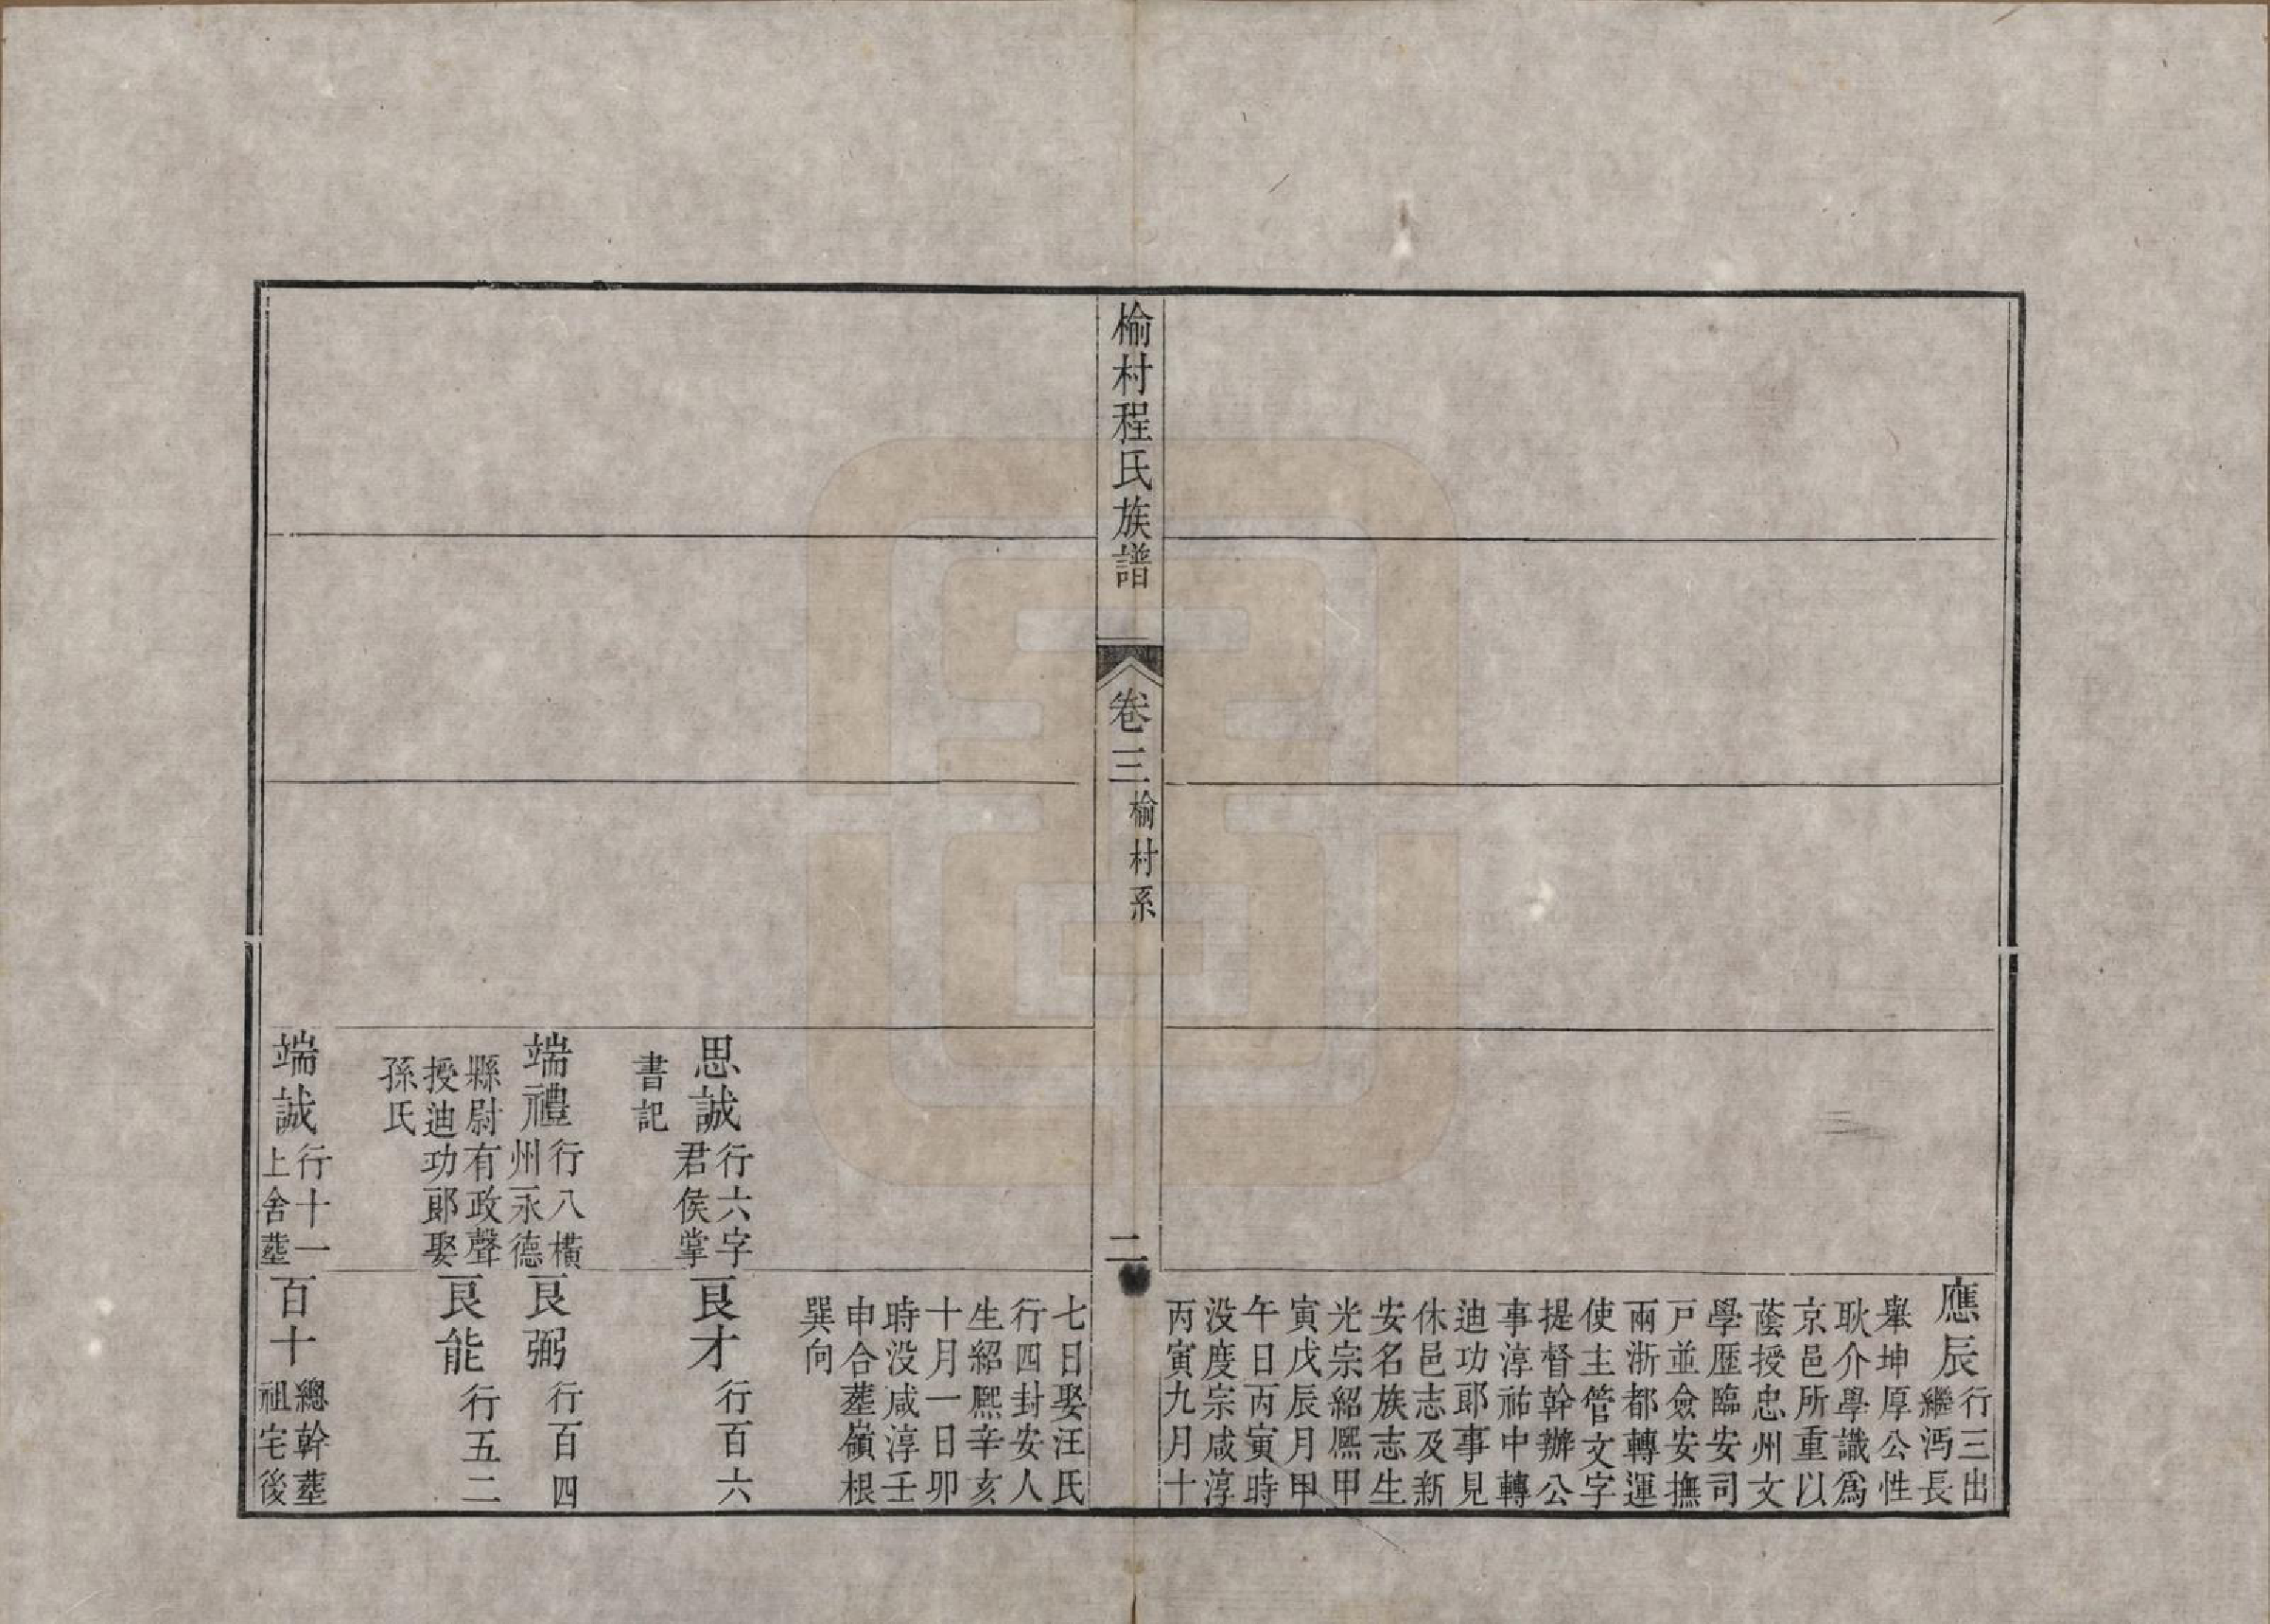 應辰
行三出
繼沔長
舉坤厚公性
耿介學識為
京邑所重以
蔭授忠州文
學歷臨安司
戸並僉安撫
兩浙都轉運
使主管文字
提督幹辦公
事淳祐中轉
迪功郎事見
休邑志及新
安名族志生
光宗紹熈甲
寅戊辰月甲
午日丙寅時
没度宗咸淳
丙寅九月十
榆村程氏族譜
卷三
榆村系
二
七日娶汪氏
行四封安人
生紹熈辛亥
十月一日卯
時没咸淳壬
申合塟嶺根
巽向
思誠
行六字
君侯掌
書記
良才
行百六
端禮
行八橫
州永德
縣尉有政聲
授迪功郎娶
孫氏
良弼
行百四
良能
行五二
端誠
行十一
上舍塟
百十
總幹塟
祖宅後